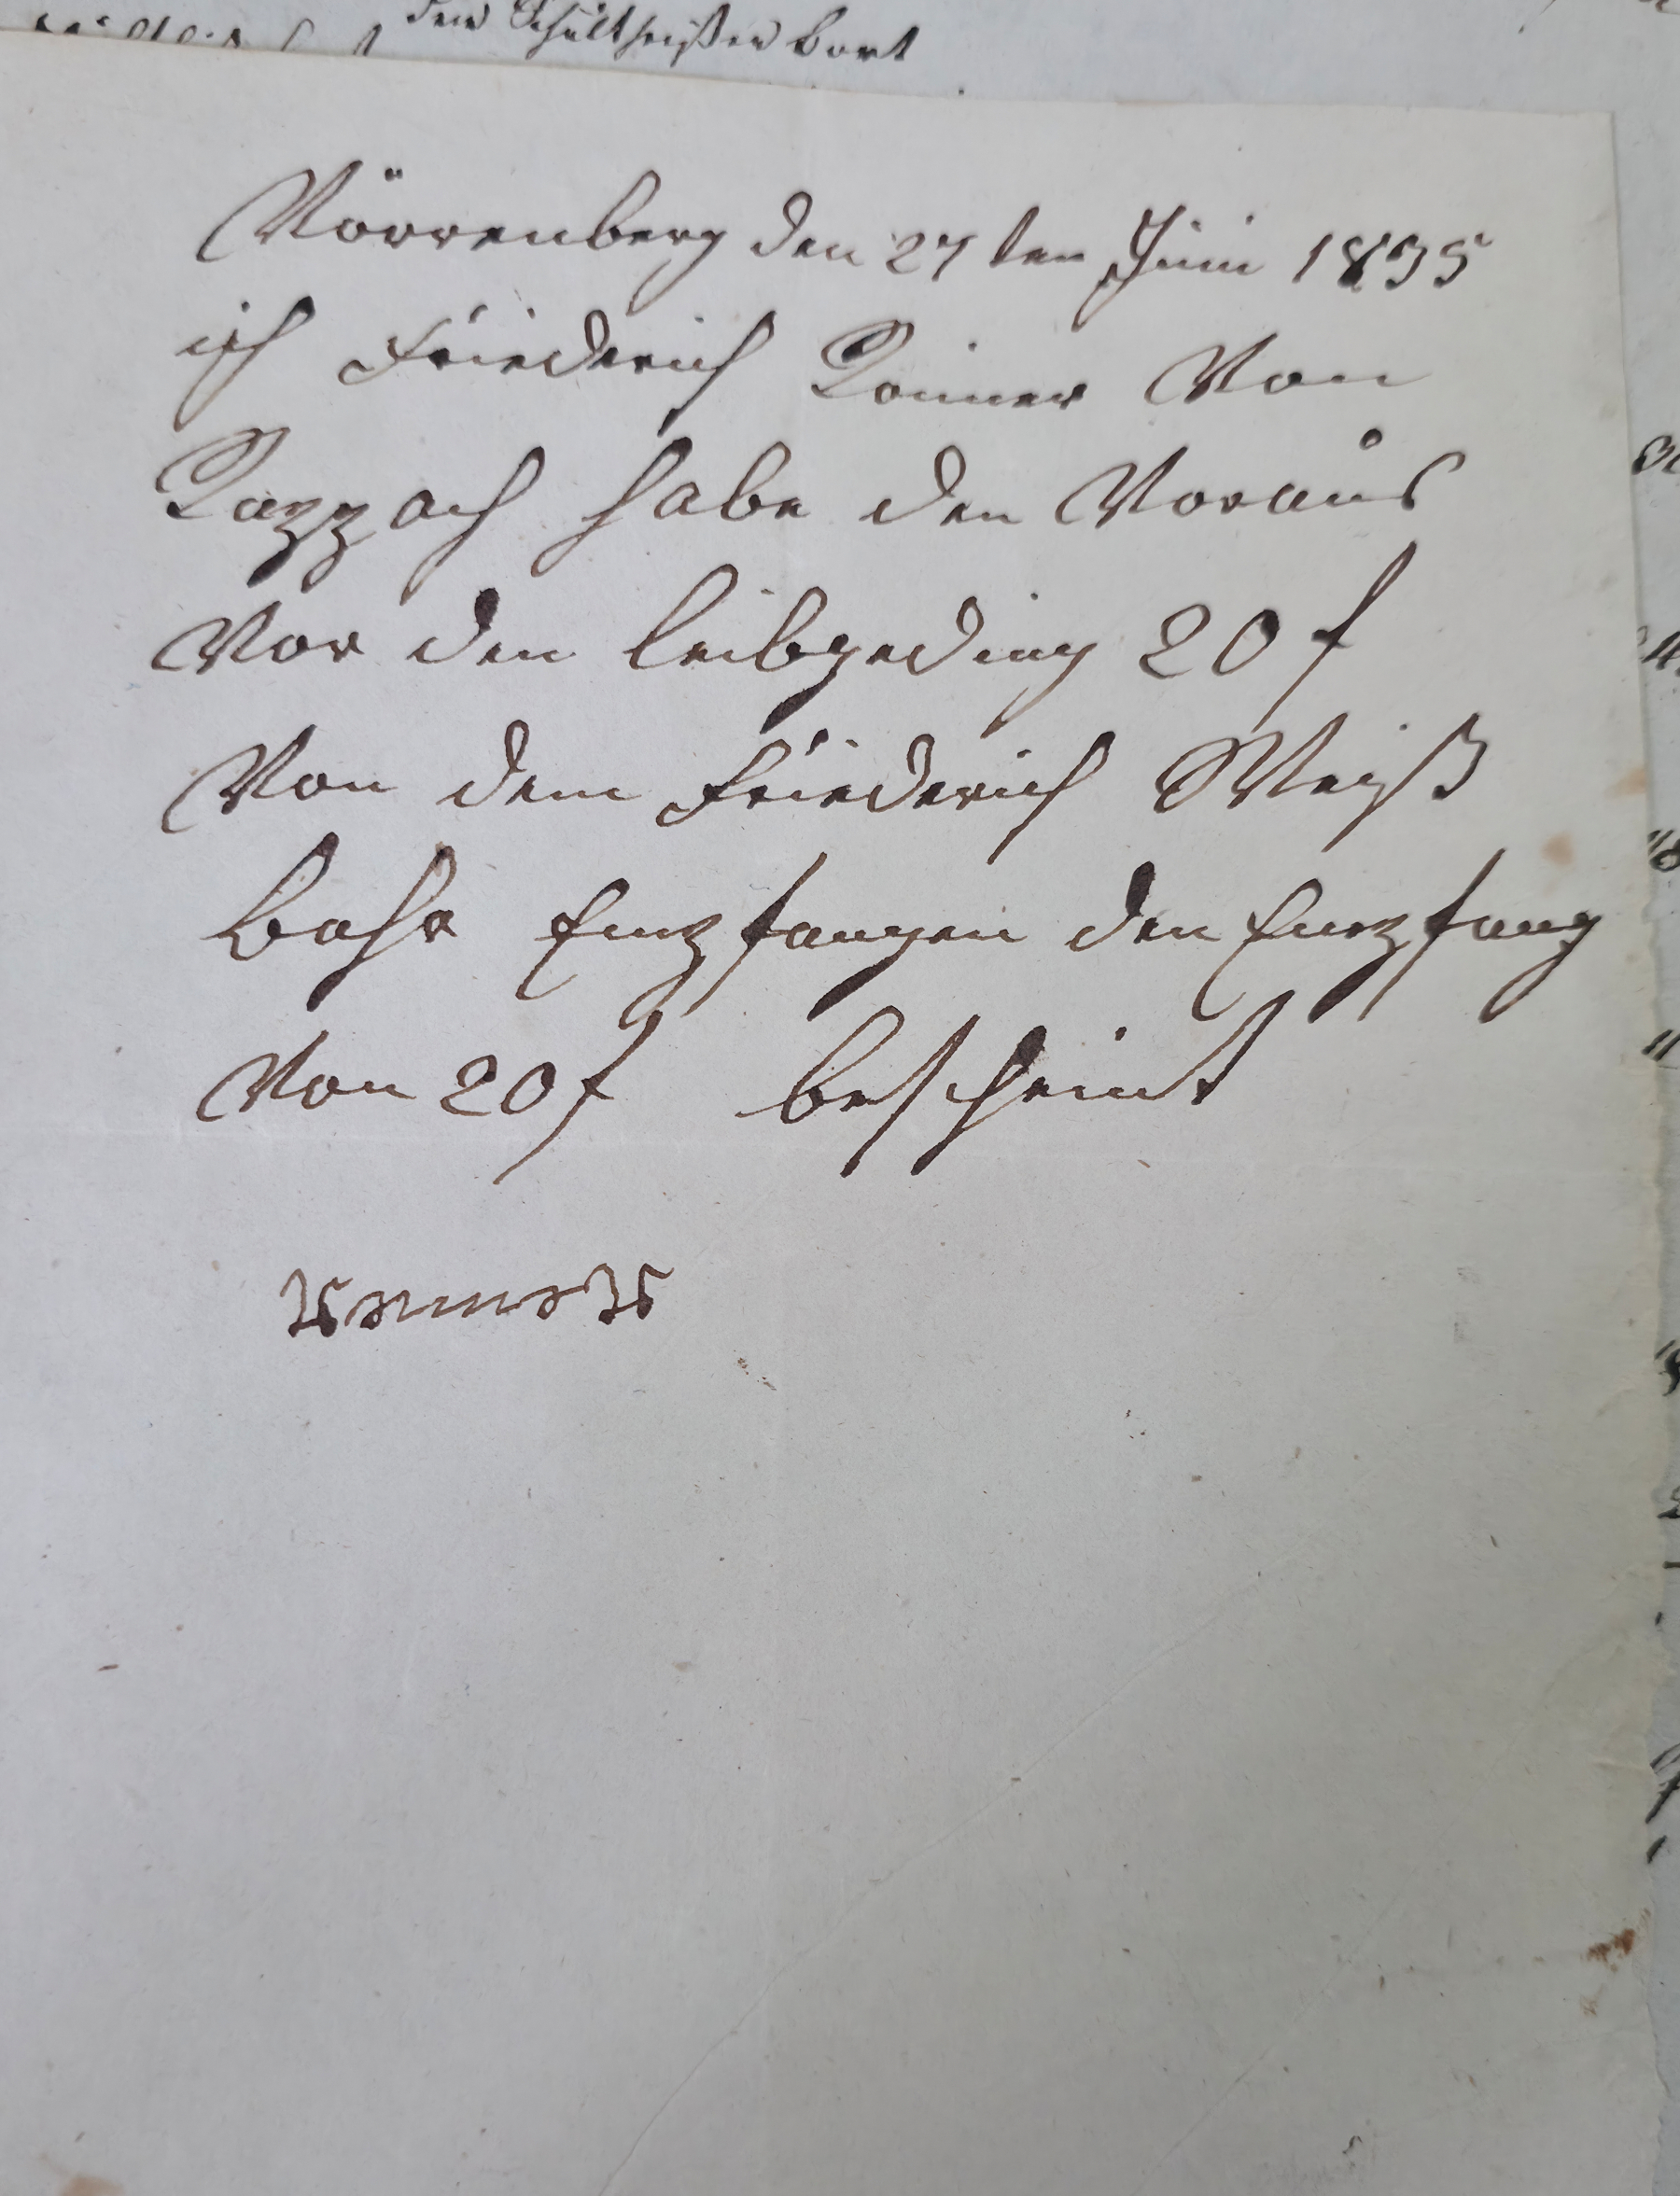 den Schultheißen bort
Vörrenberg den 27 ten Juni 1835
ich Friederich Donner Von
Lazzach habe den Voraus
Vor den leibgeding 20 f
Von dem Friederich Weiß
bahr Empfangen den Empfang
Von 20 f bescheint